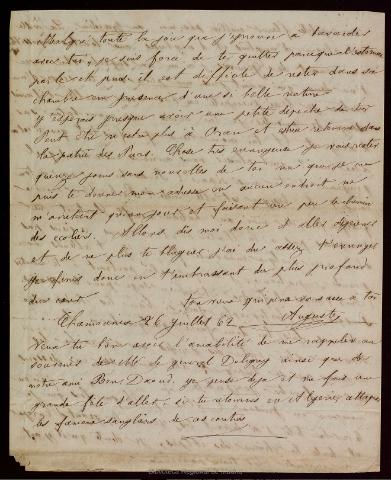 Malgré toute la joie que j'éprouve à bavarder
avec toi, je suis forcé de te quitter parceque l'estomac
parle et puis il est difficile de rester dans sa
chambre en presence d'une si belle nature.
J'espérais presque avoir une petite depeche de toi
Peut être n'es tu plus à Oran et es tu retourné dans
la patrie des Purs. Chose très ennuyeuse je vais rester
quinze jours sans nouvelles de toi vu que je ne
puis te donner mon adresse où aucun endroit ne
m'arretent qu'un jour et faisant un peu le chemin
des ecoliers. Allons dis moi donc d'aller déjeuner
et de ne plus te blaguer j'ai du assez t'ennuyer
Je finis donc en t'embrassant du plus profond
du cœur. Ton vieux qui pense sans cesse à toi
Chamounix 26 juillet 62 Auguste
Veux tu bien avoir l'amabilité de me rappeler au
souvenir de Mr le general Deligny ainsi que de
notre ami Bou Daoud. Je pense deja et me fais une
grande fête d'aller, si tu retournes en Algérie attaquer
les fameux sangliers de ces contrées